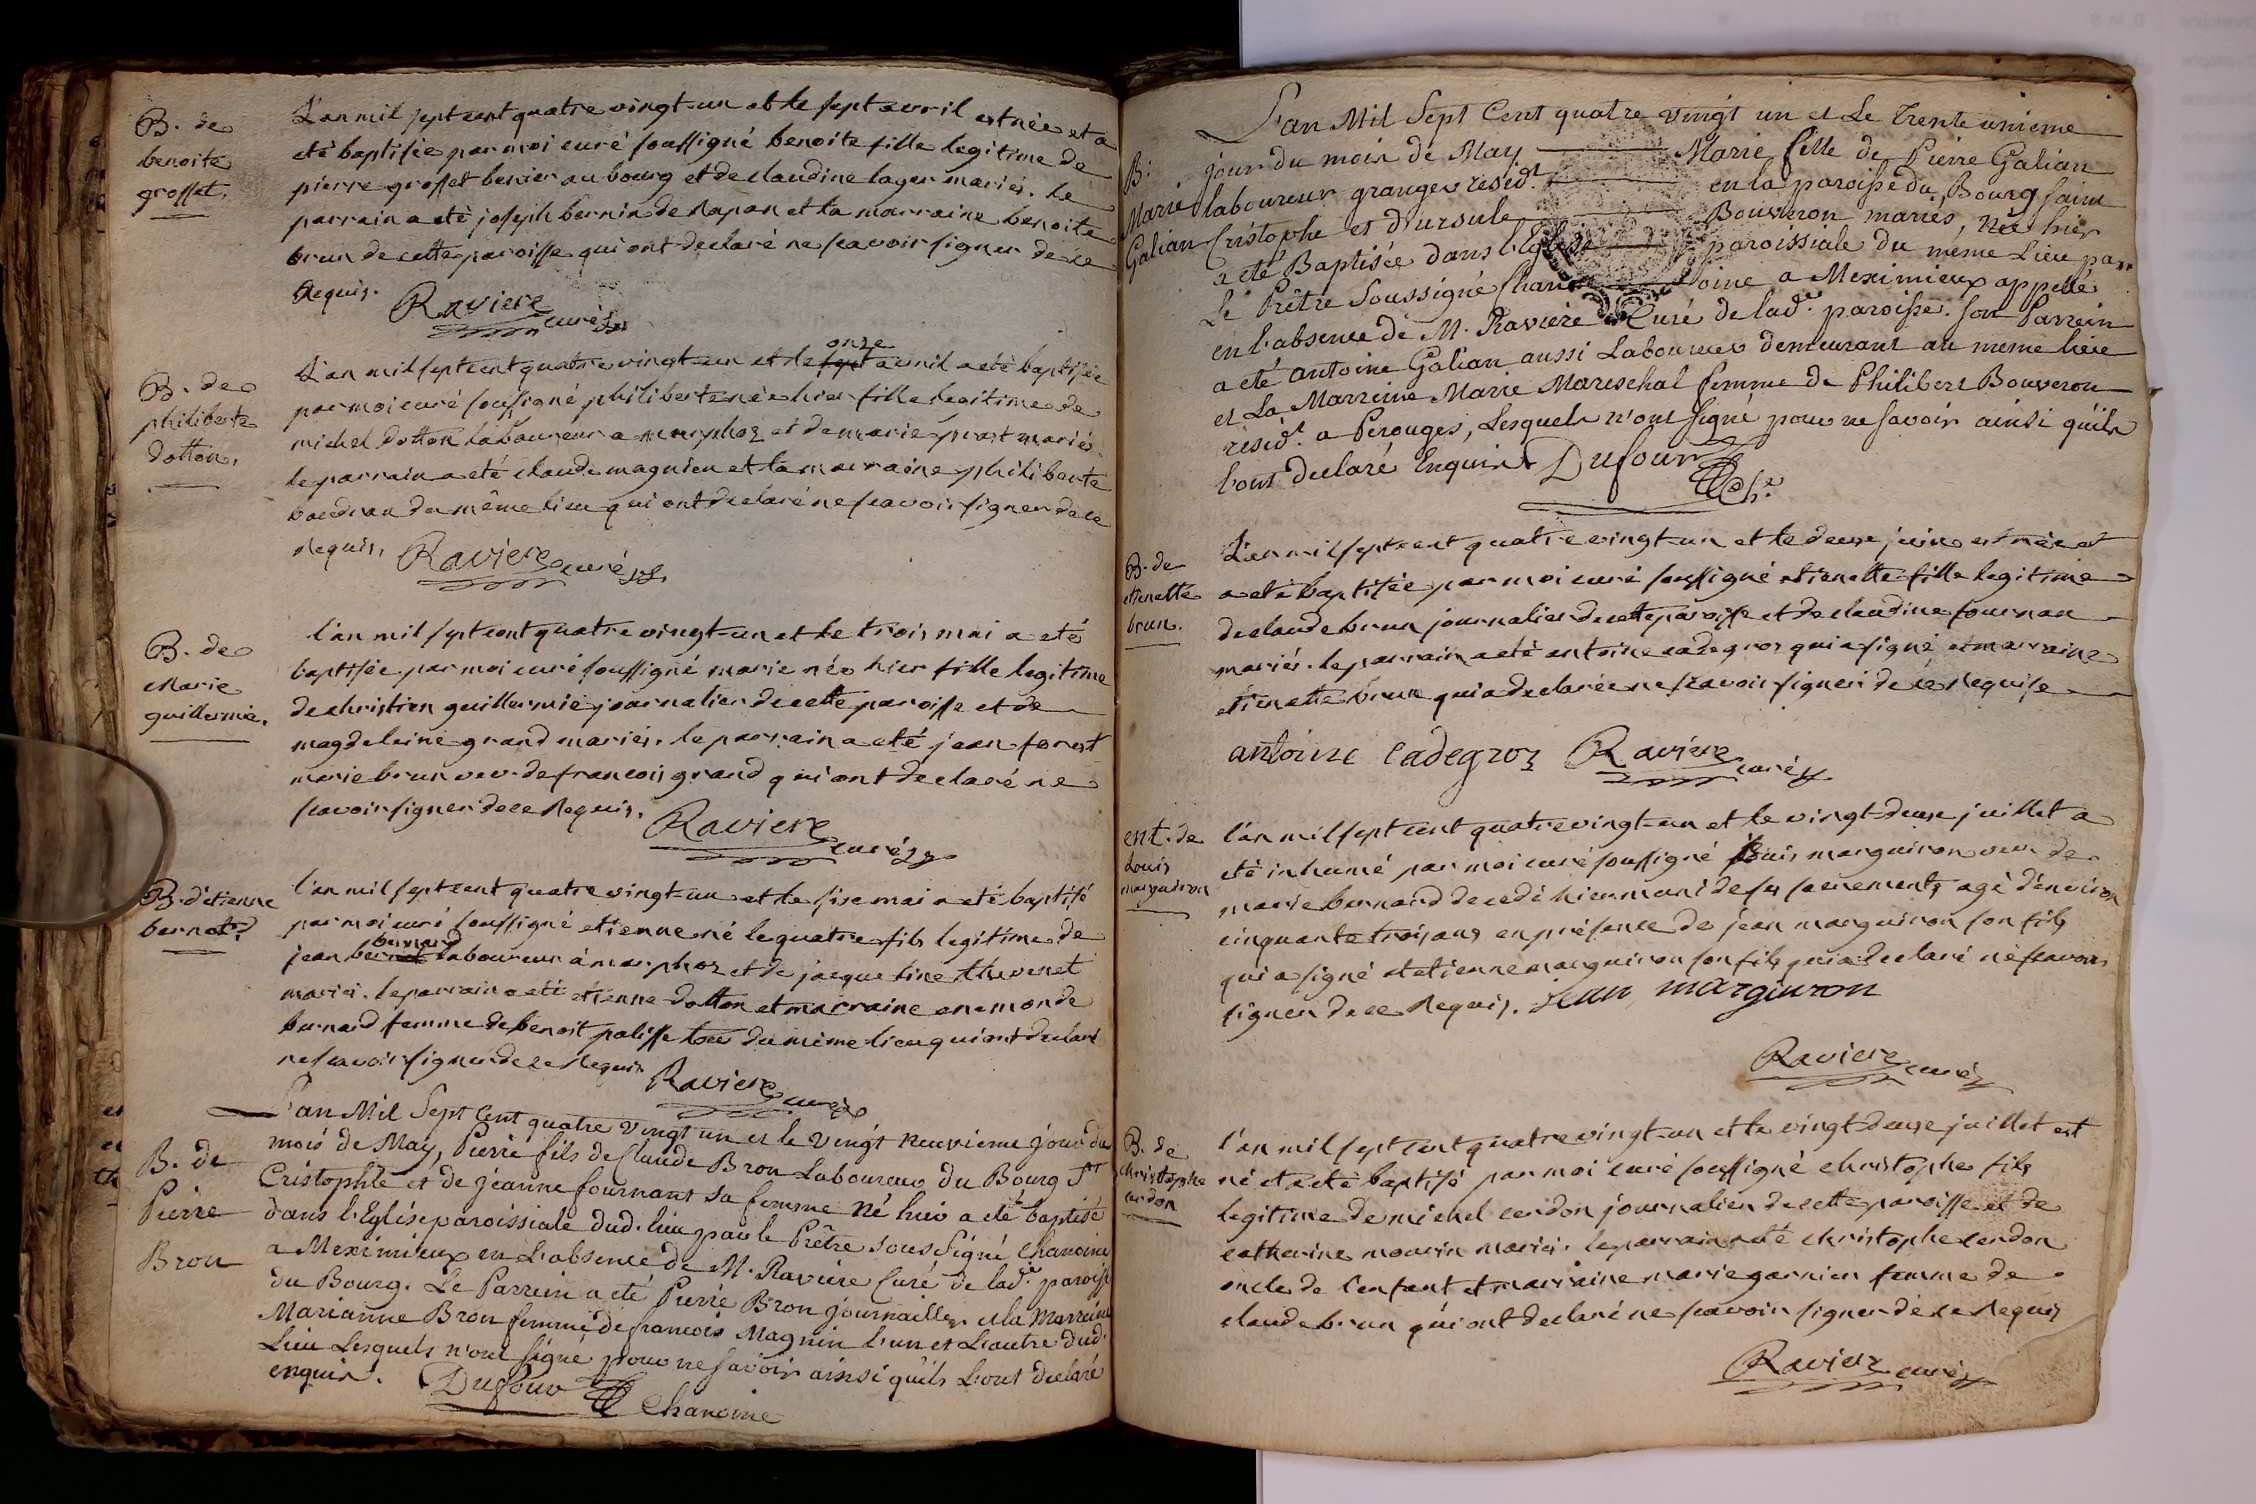 B. de
benoite
grosset.
L'an mil sept cent quatre vingt-un et le sept avril est née et a
eté baptisée par moi curé soussigné benoite fille legitime de
pierre grosset berier au bourg et de claudine lager mariés. le
parrain a eté joseph bernin de Rapan et la marraine benoite
brun de cette paroisse qui ont declaré ne scavoir signer de ce
Requis.
Raviere curé
B. de
philiberte
dotton.
onze
L'an mil sept cent quatre vingt-un et le sept avril a eté baptisée
par moi curé soussigné philiberte née hier fille legitime de
michel dotton laboureur a marphoz et de marie prost mariés.
le parrain a eté claude magnien et la marraine philiberte
du même lieu qui ont declaré ne scavoir signer de ce
Requis. Raviere curé
B. de
Marie
guillermie.
l'an mil sept cent quatre vingt-un et le trois mai a eté
baptisée par moi curé soussigné marie née hier fille legitime
de christien guillermie journalier de cette paroisse et de
magdeleine grand mariés. le parrain a eté jean forest
marie brun veu. de francois grand qui ont declaré ne
scavoir signer de ce Requis.
Raviere curé
B. d'étienne
bernot
l'an mil sept cent quatre vingt-un et le sixe mai a eté baptisé
par moi curé soussigné etienne né le quatre fils legitime de
bernard
jean bernot laboureur à marphoz et de jacqueline thevenet
mariés. le parrain a eté etienne dotton et marraine anemonde
bernard femme de benoit palisse tous du même lieu qui ont declaré
ne scavoir signer de ce Requis
Raviere curé
B. de
Pierre
Bron
L'an Mil Sept Cent quatre Vingt un et le Vingt neuvieme jour du
mois de May, Pierre fils de Claude Bron Laboureur du Bourg St
Cristophle et de jeanne fournant sa femme Né hier a eté baptisé
dans l'Eglise paroissiale dud. lieu par le Prêtre Soussigné Chanoine
a Meximieux en L'absence de M. Ravière Curé de lad.e paroisse
du Bourg. Le Parrein a eté Pierre Bron journailler et la Marreine
Marianne Bron femme de francois Magnin l'un et L'autre dud.
Lieu Lesquels n'ont signé pour ne savoir ainsi qu'ils L'ont declaré
enquis. Dufour
Chanoine
B.
Marie
Galian
L'an Mil Sept Cent quatre vingt un et Le Trente unieme
jour du mois de May Marie fille de Pierre Galian
laboureur granger résid.t en la paroisse du Bourg Saint
Cristophe et d'ursule Bouveron mariés, Née hier
a eté Baptisée dans l'Eglise paroissiale du même Lieu par
Le Prêtre Soussigné Chanoine a Meximieux appellé
en l'absence de M. Raviere Curé de lad.e paroisse. son Parrein
a eté antoine Galian aussi Laboureur demeurant au meme lieu
et La Marreine Marie Mareschal femme de Philibert Bouveron
résid.t a Perouges, Lesquels n'ont signé pour ne savoir ainsi qu'ils
l'ont declaré Enquis Dufour
Ch.e
B. de
etienette
brun.
L'an mil sept cent quatre vingt-un et le deuxe juin est née et
a eté baptisée par moi curé soussigné etienette fille legitime
de claude brun journalier de cette paroisse et de claudine fournan
mariés. le parrain a eté antoine cadegros qui a signé et marraine
etienette brun qui a declarée ne scavoir signer de ce Requise
antoine Cadegroz Raviere curé
ent. de
Louis
marguiron
l'an mil sept cent quatre vingt-un et le vingt-deuxe juillet a
eté inhumé par moi curé soussigné Louis marguiron veu. de
marie bernard decedé hier muni de ses sacrements agé d'environ
cinquante trois ans en présence de jean marguiron son fils
qui a signé et etienne marguiron son fils qui a declaré ne scavoir
signer de ce Requis. jean margiuron
Raviere curé
B. de
christophe
cerdon
l'an mil sept cent quatre vingt-un et le vingt-deuxe juillet est
né et a eté baptisé par moi curé soussigné christophe fils
legitime de michel cerdon journalier de cette paroisse et de
catherine mariés. le parrain a eté christophe cerdon
oncle de l'enfant et marraine marie garnier femme de
claude brun qui ont declaré ne scavoir signer de ce Requis
Raviere curé